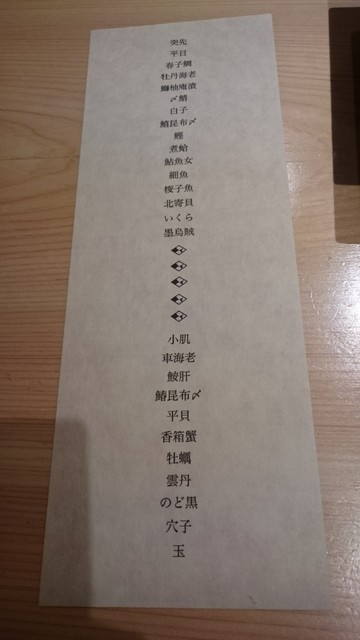 突先
平目
春子鯛
牡丹海老
鰤柚庵漬
〆鯖
白子
鱚昆布〆
鰹
煮蛤
鮎魚女
細魚
梭子魚
北寄貝
いくら
墨烏賊
小肌
車海老
鮟肝
鰆昆布〆
平貝
香箱蟹
牡蠣
雲丹
のど黒
穴子
玉